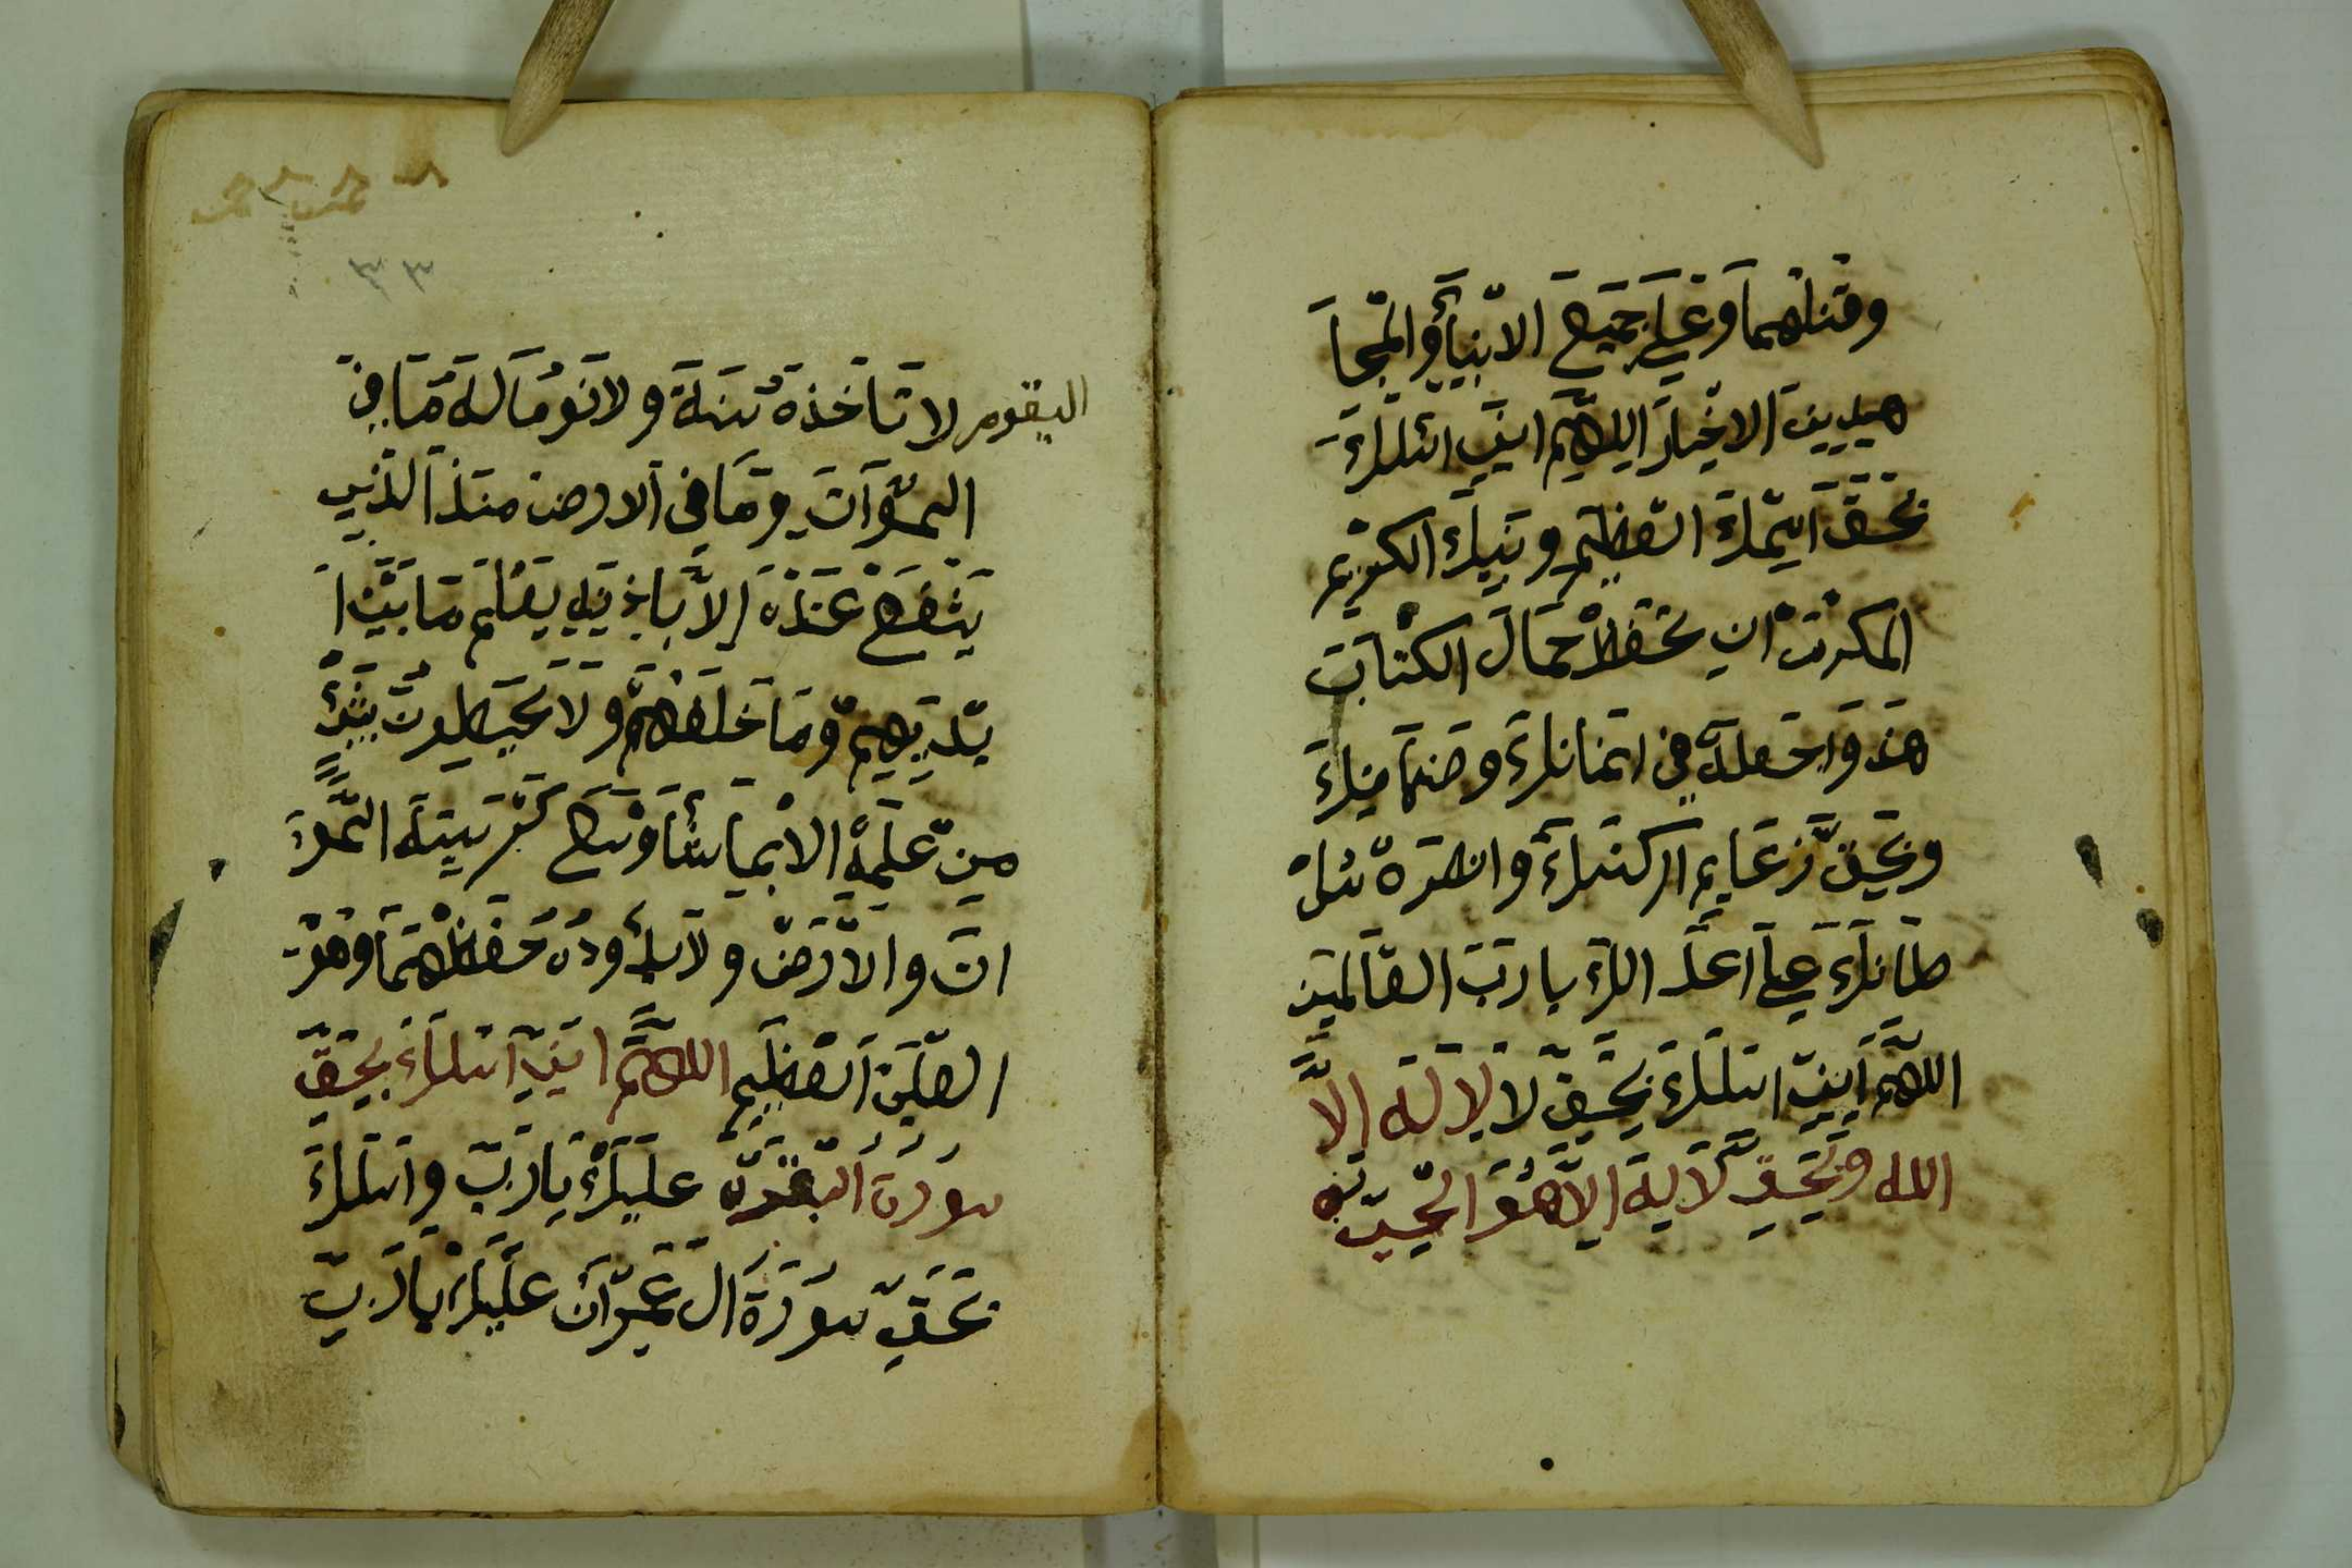 وقتلهما وعلى جميع الانبيآء والمجا
هيديين الاخيار اللهم اني اسئلك
بحق اسمك العظيم ونبيك الكريم
المكرمت ان تحفظ حمال الكتابت
هذ واجعله في امانك وضمامنك
وبحق زعايم اركنك وانصره سل
طانك على اعداك يا رب العالمين
اللهم اني اسئلك بحق لا لا له الا
الله وبحق لا ليه الا هو الحي
اليقوم لا تاخذه سنة ولا نوم له ما في
السموات وما في الارض منذا الذي
يشفع عنده الا باذنه يعلم ما بين ا
يديهم وما خلفهم ولا يحيطون بشئ
من علمه الا بما شأ وسع كرسيته السمو
ات والارض ولا يئوده حفظهما وهو
العلي العظيم اللهم اني اسئلك بحق
سورة البقرة عليك يا رب واسئلك
بحق سورة ال عمران عليك يا رب
٣٣